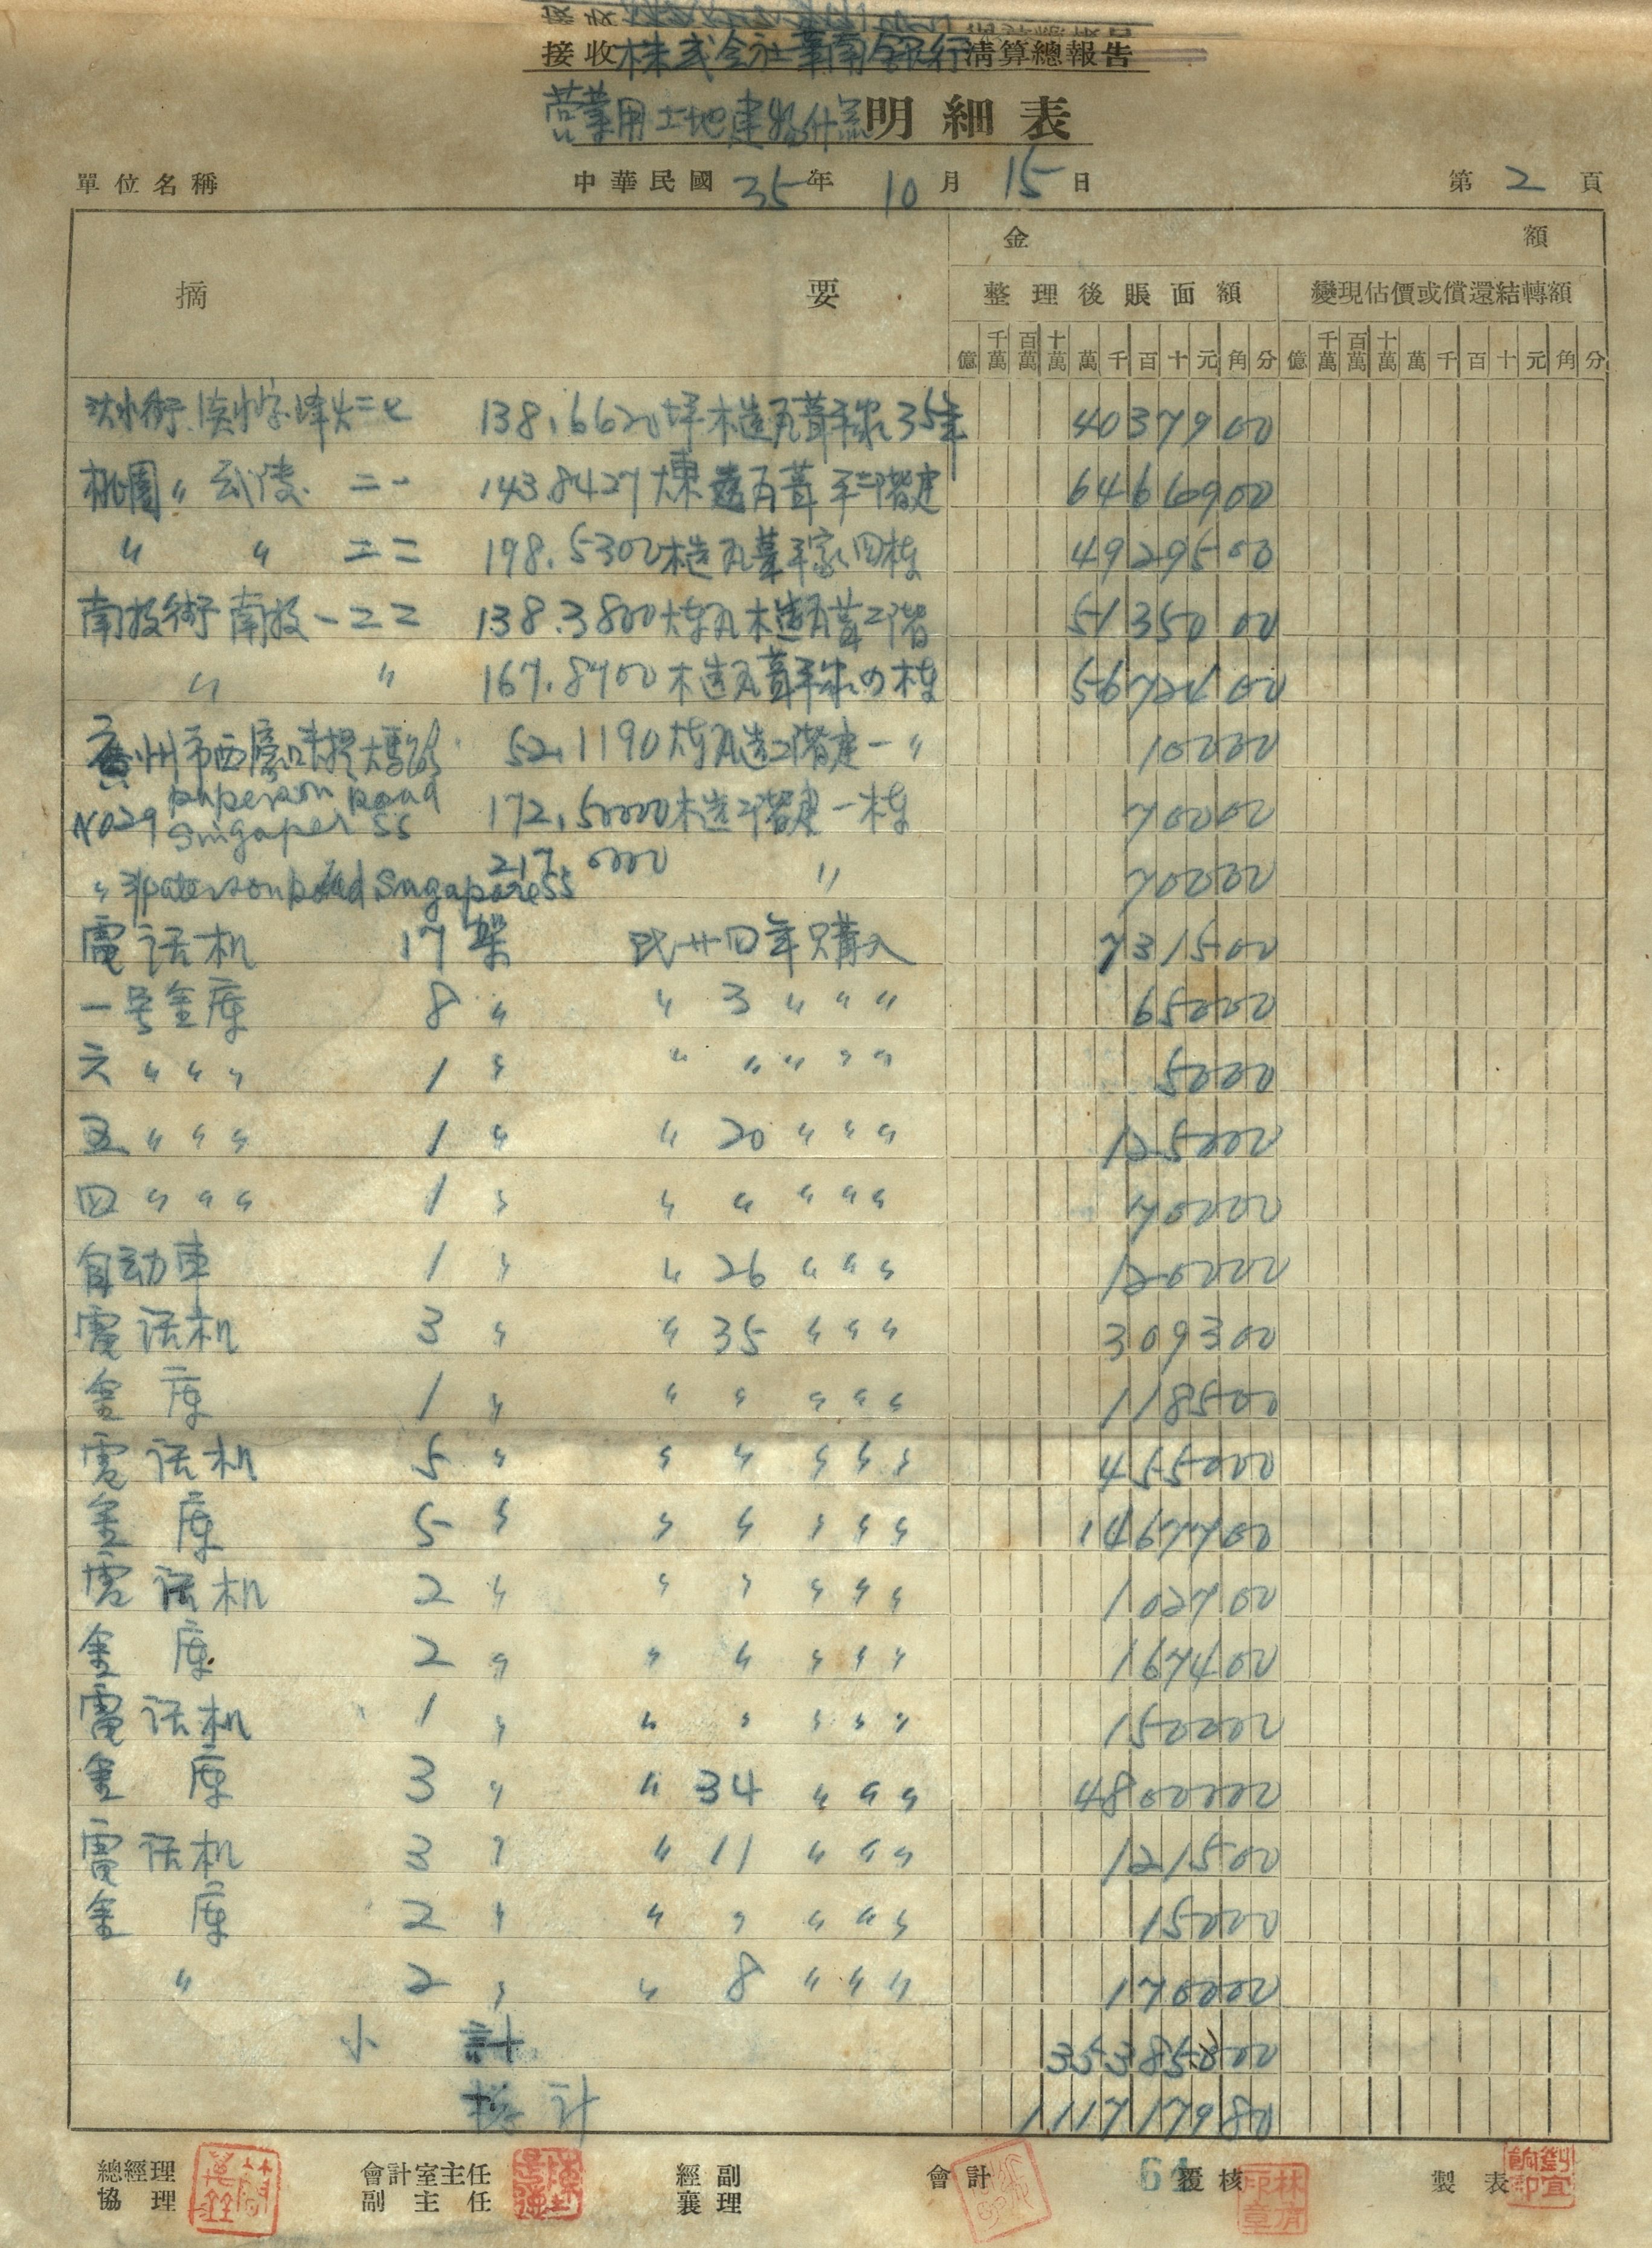 接收株式会社華南銀行清算總報告
營業用土地建物什器明細表
單位名稱 中華民國 35 年 10 月 15 日 第 2 頁
摘 要 金 額
整理後賬面額 變現估價或償還結轉額
億 千萬 百萬 十萬 萬 千 百 十 元 角 分 億 千萬 百萬 十萬 萬 千 百 十 元 角 分
淡水街 淡水字烽火二七 138.6620坪木造瓦葺平家35年 4037900
桃園〃 武陵 二一 143.8427 煉造瓦葺平二階建 6466900
〃 〃 二二 198.5300木造瓦葺平家四栋 4929500
南投街 南投一二二 138.3800煉瓦木造瓦葺二階 5135000
〃 〃 167.8900木造瓦葺平家の栋 5672400
廣州市西濠口長堤大馬路 52.1190煉瓦造二階建一〃 10000
NO29 paperson Road Singaper SS 172.50000木造二階建一栋 70000
〃 31 paterson Road Singapore SS 217.0000 〃 70000
電话机 17架 民卅四年購入 731500
一号金庫 8〃 〃3〃〃〃 65000
六〃〃〃 1〃 〃〃〃〃〃 5000
五〃〃〃 1〃 〃20〃〃〃 125000
四〃〃〃 1〃 〃〃〃〃〃 70000
自动車 1〃 〃26〃〃〃 120000
電话机 3〃 〃35〃〃〃 309300
金庫 1〃 〃〃〃〃〃 118500
電话机 5〃 〃〃〃〃〃 455000
金庫 5〃 〃〃〃〃〃 1467700
電话机 2〃 〃〃〃〃〃 102700
金庫 2〃 〃〃〃〃〃 167400
電话机 1〃 〃〃〃〃〃 150000
金庫 3〃 〃34〃〃〃 4800000
電话机 3〃 〃11〃〃〃 121500
金庫 2〃 〃〃〃〃〃 15000
〃 2〃 〃8〃〃〃 170000
小計 35385800
总计 111717980
總經理 會計室主任 經副 會計 64 覆核 製表
協理 副主任 襄理